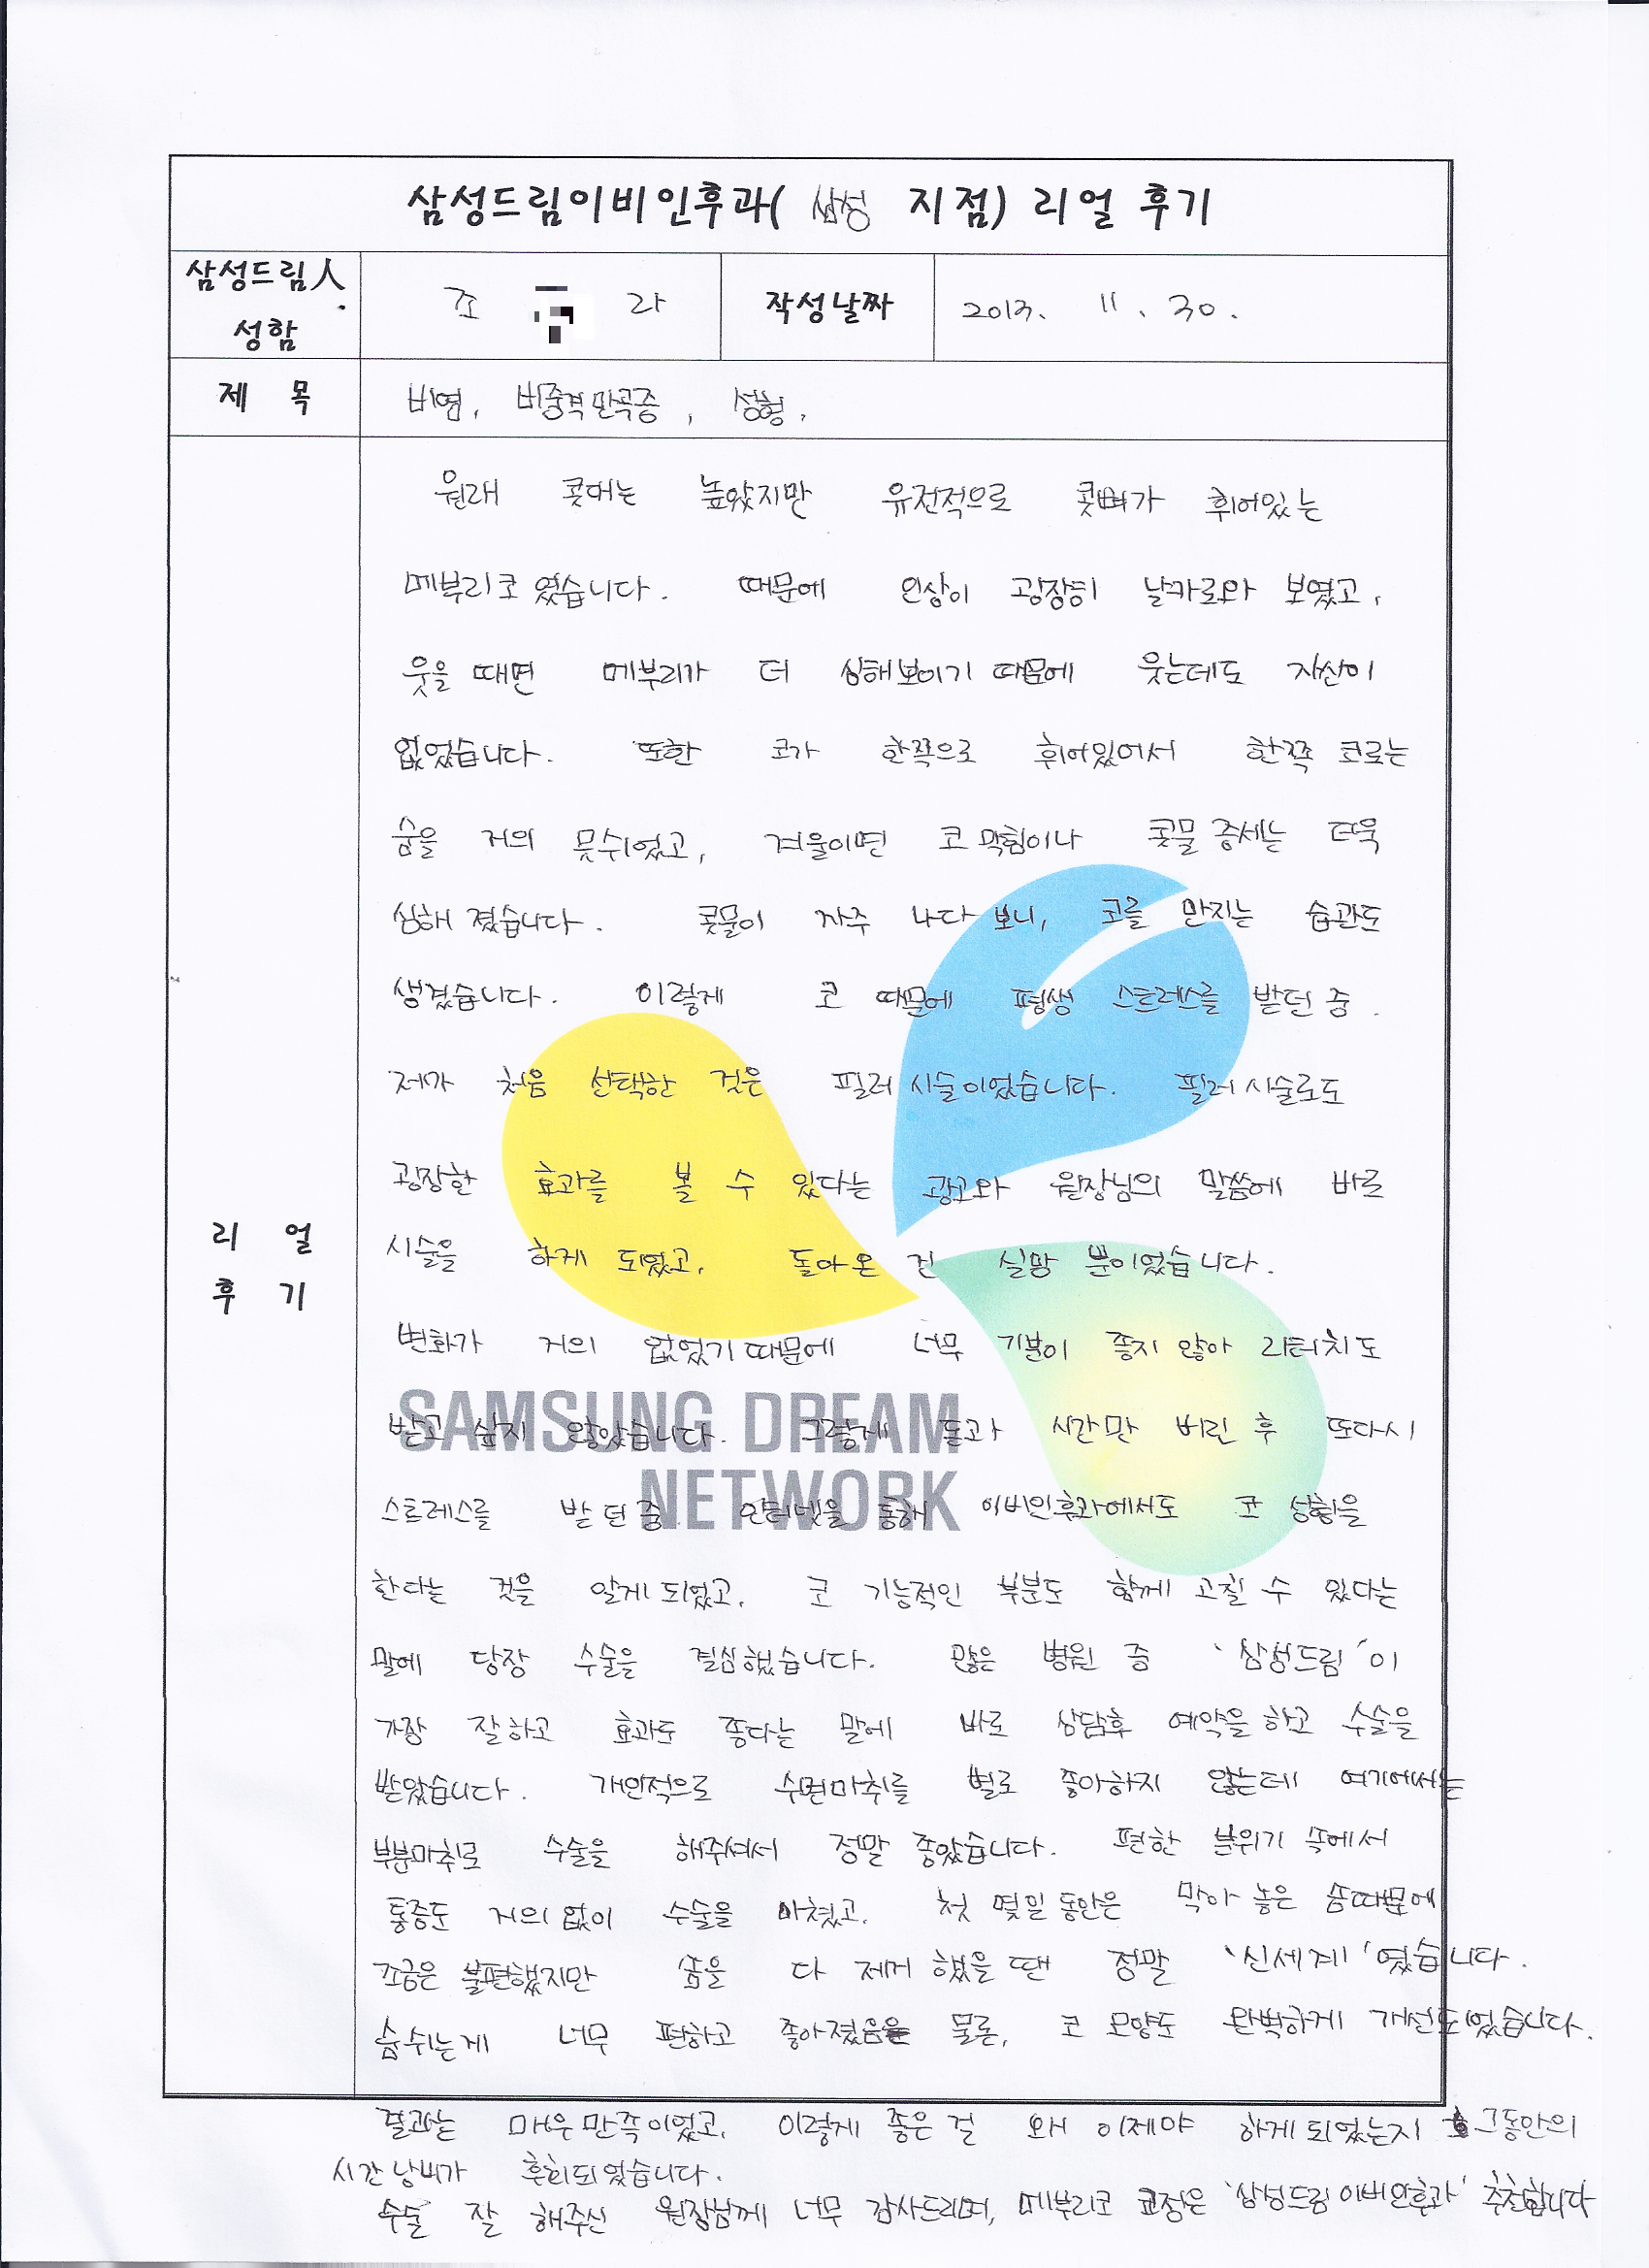 삼성드림이비인후과( 삼성 지점) 리얼 후기
삼성드림人 성함
조 라
작성날짜
2013. 11. 30.
제 목
비염, 비중격만곡증, 성형.
리 얼
후 기
원래 콧대는 높았지만 유전적으로 콧뼈가 휘어있는
메부리코였습니다. 때문에 인상이 굉장히 날카로와 보였고,
웃을 때면 메부리가 더 심해보이기 때문에 웃는데도 자신이
없었습니다. 또한 코가 한쪽으로 휘어있어서 한쪽 코로는
숨을 거의 못쉬었고, 겨울이면 코막힘이나 콧물 증세는 더욱
심해졌습니다. 콧물이 자주 나다 보니, 코를 만지는 습관도
생겼습니다. 이렇게 코 때문에 평생 스트레스를 받던 중
제가 처음 선택한 것은 필러시술이었습니다. 필러시술로도
굉장한 효과를 볼 수 있다는 광고와 원장님의 말씀에 바로
시술을 하게 되었고, 돌아온 건 실망 뿐이었습니다.
변화가 거의 없었기때문에 너무 기분이 좋지 않아 리터치도
받고 싶지 않았습니다. 그렇게 돈과 시간만 버린 후 또다시
SAMSUNG DREAM
NETWORK
스트레스를 받던 중 인터넷을 통해 이비인후과에서도 코 성형을
한다는 것을 알게되었고, 코 기능적인 부분도 함께 고칠 수 있다는
말에 당장 수술을 결심했습니다. 많은 병원 중 '삼성드림'이
가장 잘하고 효과도 좋다는 말에 바로 상담후 예약을 하고 수술을
받았습니다. 개인적으로 수면마취를 별로 좋아하지 않는데 여기에서는
부분마취로 수술을 해주셔서 정말 좋았습니다. 편한 분위기 속에서
통증도 거의없이 수술을 마쳤고, 첫 몇일 동안은 막아 놓은 솜때문에
조금은 불편했지만 솜을 다 제거 했을 땐 정말 '신세계'였습니다.
숨쉬는게 너무 편하고 좋아졌음은 물론, 코 모양도 완벽하게 개선되었습니다.
결과는 매우만족이었고, 이렇게 좋은 걸 왜 이제야 하게되었는지 그동안의
시간낭비가 후회되었습니다.
수술 잘 해주신 원장님께 너무 감사드리며, 메부리코 교정은 '삼성드림이비인후과' 추천합니다